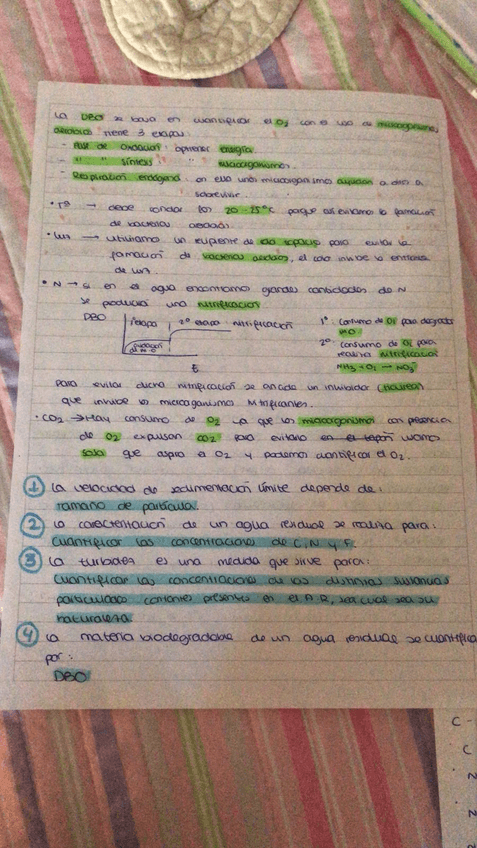 La DBO se basa en cuantificar el O2 con el uso de microorganismos
aerobios tiene 3 etapas:
- Fase de oxidación: obtener energía.
- " " síntesis " microorganismos.
- Respiración endógena: en ella unos microorganismos a otros a
sobrevivir.
• Tº → debe rondar los 20-25ºC porque así evitamos la formación
de bacterias
• Luz → utilizamos un recipiente de color topacio para evitar la
formación de bacterias, el color inhibe la entrada
de luz.
• N → si en el agua encontramos grandes cantidades de N
se producirá una nitrificación
DBO 1ª etapa 2ª etapa - nitrificación
oxidación
de M.O
t
1º Consumo de O2 para degradar
MO.
2º consumo de O2 para
realizar nitrificación
NH3 + O2 → NO3-
para evitar dicha nitrificación se añade un inhibidor (tiourea)
que inhibe los microorganismos nitrificantes.
• CO2 → Hay consumo de O2 ya que los microorganismos con presencia
de O2 expulsan CO2 para evitarlo en el tapón
sosa que aspira el O2 y podemos cuantificar el O2.
1 La velocidad de sedimentación límite depende de:
Tamaño de partícula.
2 La caracterización de un agua residual se realiza para:
Cuantificar las concentraciones de C, N y F.
3 La turbidez es una medida que sirve para:
Cuantificar las concentraciones de las distintas sustancias
presente en el A.R, sea cual sea su
naturaleza.
4 La materia biodegradable de un agua residual se cuantifica
por:
DBO
C -
C
N
N